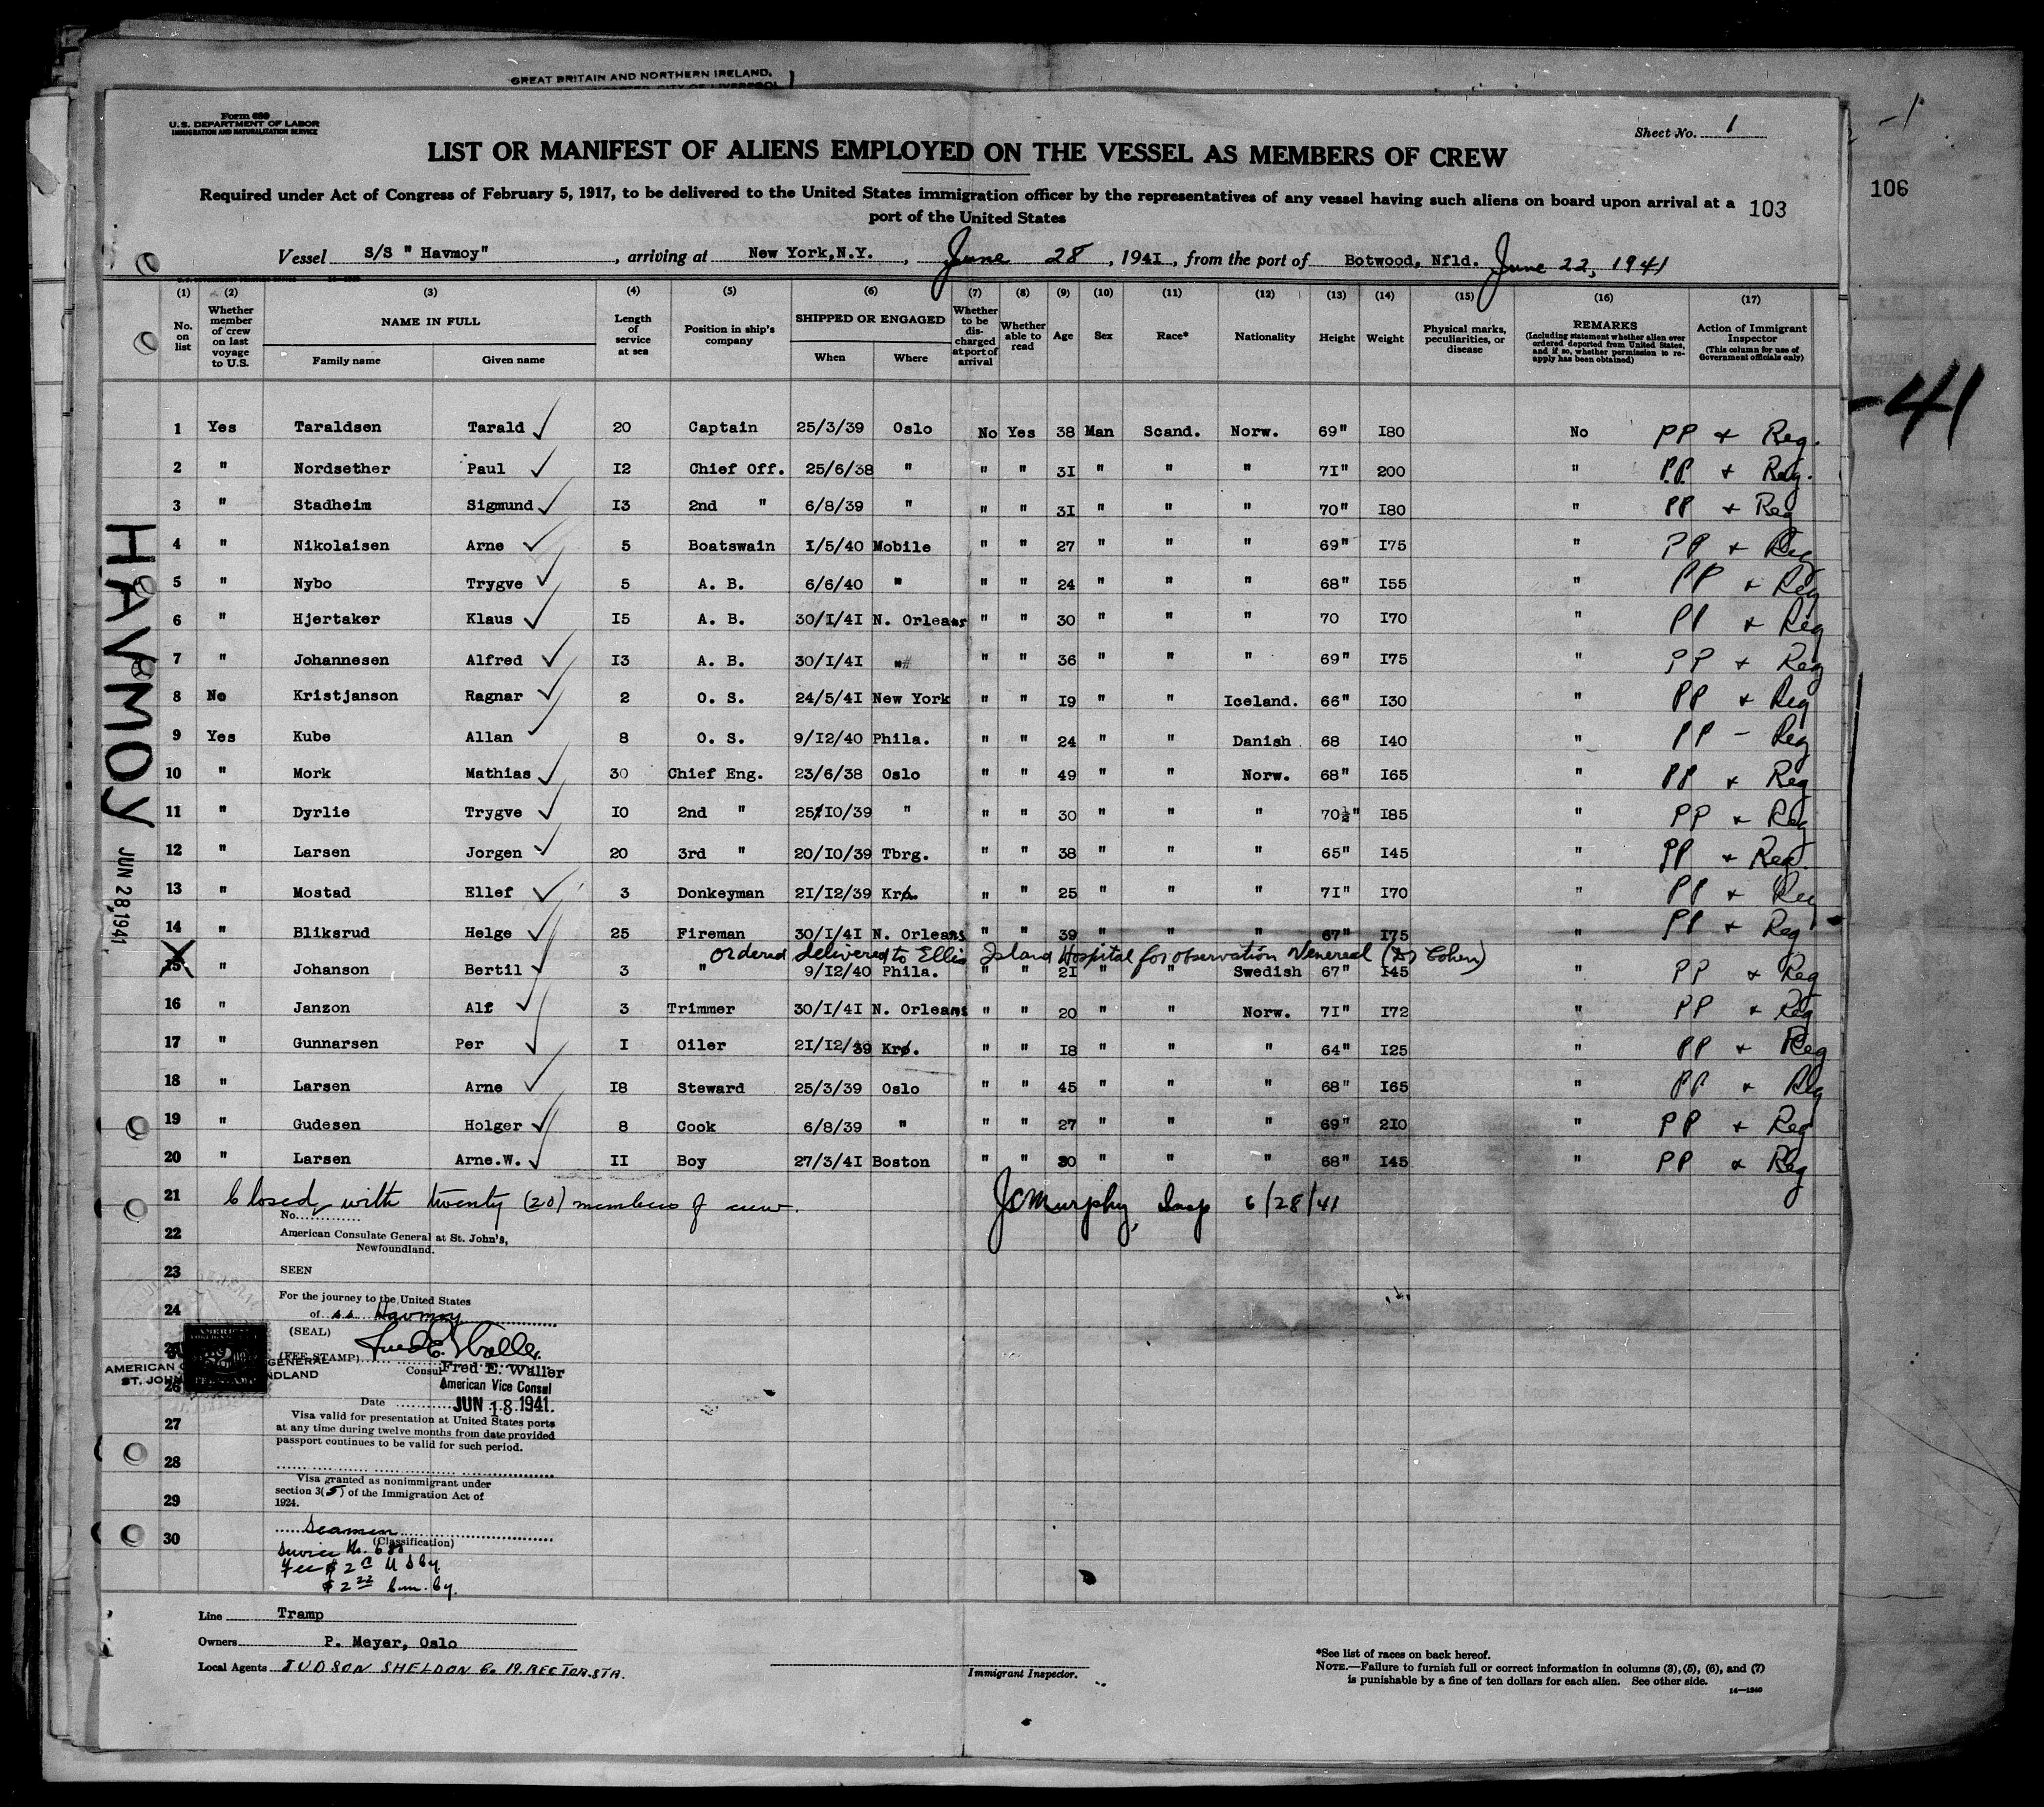 GREAT BRITAIN AND NORTHERN IRELAND,
Form 689
U.S. DEPARTMENT OF LABOR
IMMIGRATION AND NATURALIZATION SERVICE
Sheet No. 1
LIST OR MANIFEST OF ALIENS EMPLOYED ON THE VESSEL AS MEMBERS OF CREW
Required under Act of Congress of February 5, 1917, to be delivered to the United States immigration officer by the representatives of any vessel having such aliens on board upon arrival at a
port of the United States
103
106
-41
Vessel S/S " Havmoy" , arriving at New York,N.Y. , June 28 , 1941 , from the port of Botwood, Nfld. June 22, 1941
(1) (2) (3) (4) (5) (6) (7) (8) (9) (10) (11) (12) (13) (14) (15) (16) (17)
No. on list
Whether member of crew on last voyage to U.S.
NAME IN FULL
Family name Given name
Length of service at sea
Position in ship's company
SHIPPED OR ENGAGED
When Where
Whether to be discharged at port of arrival
Whether able to read
Age
Sex
Race*
Nationality
Height
Weight
Physical marks, peculiarities, or disease
REMARKS
(Including statement whether alien ever ordered deported from United States, and if so, whether permission to reapply has been obtained)
Action of Immigrant Inspector
(This column for use of Government officials only)
1 Yes Taraldsen Tarald ✓ 20 Captain 25/3/39 Oslo No Yes 38 Man Scand. Norw. 69" I80 No PP + Reg.
2 " Nordsether Paul ✓ I2 Chief Off. 25/6/38 " " " 3I " " " 7I" 200 " PP + Reg.
3 " Stadheim Sigmund ✓ I3 2nd " 6/8/39 " " " 3I " " " 70" I80 " PP + Reg
4 " Nikolaisen Arne ✓ 5 Boatswain I/5/40 Mobile " " 27 " " " 69" I75 " PP + Reg
5 " Nybo Trygve ✓ 5 A. B. 6/6/40 " " " 24 " " " 68" I55 " PP + Reg
6 " Hjertaker Klaus ✓ I5 A. B. 30/I/4I N. Orleans " " 30 " " " 70 I70 " PP + Reg
7 " Johannesen Alfred ✓ I3 A. B. 30/I/4I " " " 36 " " " 69" I75 " PP + Reg
8 No Kristjanson Ragnar ✓ 2 O. S. 24/5/4I New York " " I9 " " Iceland. 66" I30 " PP + Reg
9 Yes Kube Allan ✓ 8 O. S. 9/I2/40 Phila. " " 24 " " Danish 68 I40 " PP - Reg
10 " Mork Mathias ✓ 30 Chief Eng. 23/6/38 Oslo " " 49 " " Norw. 68" I65 " PP + Reg
11 " Dyrlie Trygve ✓ I0 2nd " 25/I0/39 " " " 30 " " " 70½" I85 " PP + Reg
12 " Larsen Jorgen ✓ 20 3rd " 20/I0/39 Tbrg. " " 38 " " " 65" I45 " PP + Reg.
13 " Mostad Ellef ✓ 3 Donkeyman 2I/I2/39 Krø. " " 25 " " " 7I" I70 " PP + Reg
14 " Bliksrud Helge ✓ 25 Fireman 30/I/4I N. Orleans " " 39 " " " 67" I75 " PP + Reg
ordered delivered to Ellis Island Hospital for observation Venereal (Dr Cohen)
15 " Johanson Bertil ✓ 3 " 9/I2/40 Phila. " " 2I " " Swedish 67" I45 " PP + Reg
16 " Janzon Alf ✓ 3 Trimmer 30/I/4I N. Orleans " " 20 " " Norw. 7I" I72 " PP + Reg
17 " Gunnarsen Per ✓ I Oiler 2I/I2/39 Krø. " " I8 " " " 64" I25 " PP + Reg
18 " Larsen Arne ✓ I8 Steward 25/3/39 Oslo " " 45 " " " 68" I65 " PP + Reg
19 " Gudesen Holger ✓ 8 Cook 6/8/39 " " " 27 " " " 69" 2I0 " PP + Reg
20 " Larsen Arne.W. ✓ II Boy 27/3/4I Boston " " 30 " " " 68" I45 " PP + Reg
21 Closed with twenty (20) members of crew. JC Murphy, Insp 6/28/41
HAVMOY
JUN 28 1941
No.
22 American Consulate General at St. John's,
Newfoundland.
23 SEEN
For the journey to the United States
24 of s.s. Havmoy
(SEAL)
(FEE STAMP)
Fred E. Waller
Consul Fred E. Waller
American Vice Consul
26
Date JUN 18 1941.
27 Visa valid for presentation at United States ports
at any time during twelve months from date provided
passport continues to be valid for such period.
28
Visa granted as nonimmigrant under
section 3(5) of the Immigration Act of
29 1924.
30 Seamen
(Classification)
Service No. 688
Fee $ 2 U S Cy.
$ 2 22 Can. Cy.
Line Tramp
Owners P. Meyer, Oslo
Local Agents JUDSON SHELDON Co 19. RECTOR. STR.
Immigrant Inspector.
*See list of races on back hereof.
NOTE.—Failure to furnish full or correct information in columns (3), (5), (6), and (7)
is punishable by a fine of ten dollars for each alien. See other side.
14—1240